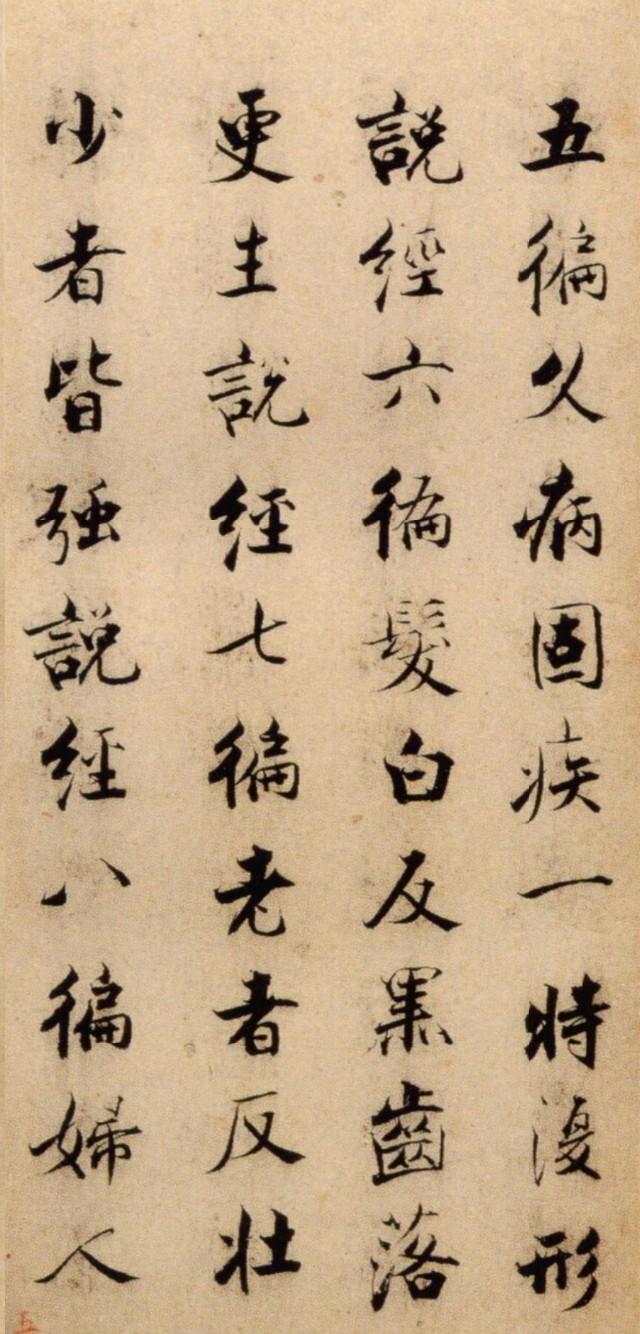 五徧久病固疾一時復形
說經六徧髮白反黑齒落
更生說經七徧老者反壯
少者皆強說經八徧婦人
五